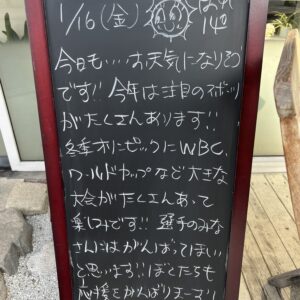 1/16(金) はれ 14℃
今日も…お天気になりそう
です!! 今年は注目のスポーツ
がたくさんあります!!
冬季オリンピックにWBC、
ワールドカップなど大きな
大会がたくさんあって
楽しみです!! 選手のみな
さんにはがんばってほしい
と思います!! ぼくたちも
応援をがんばりまーす!!